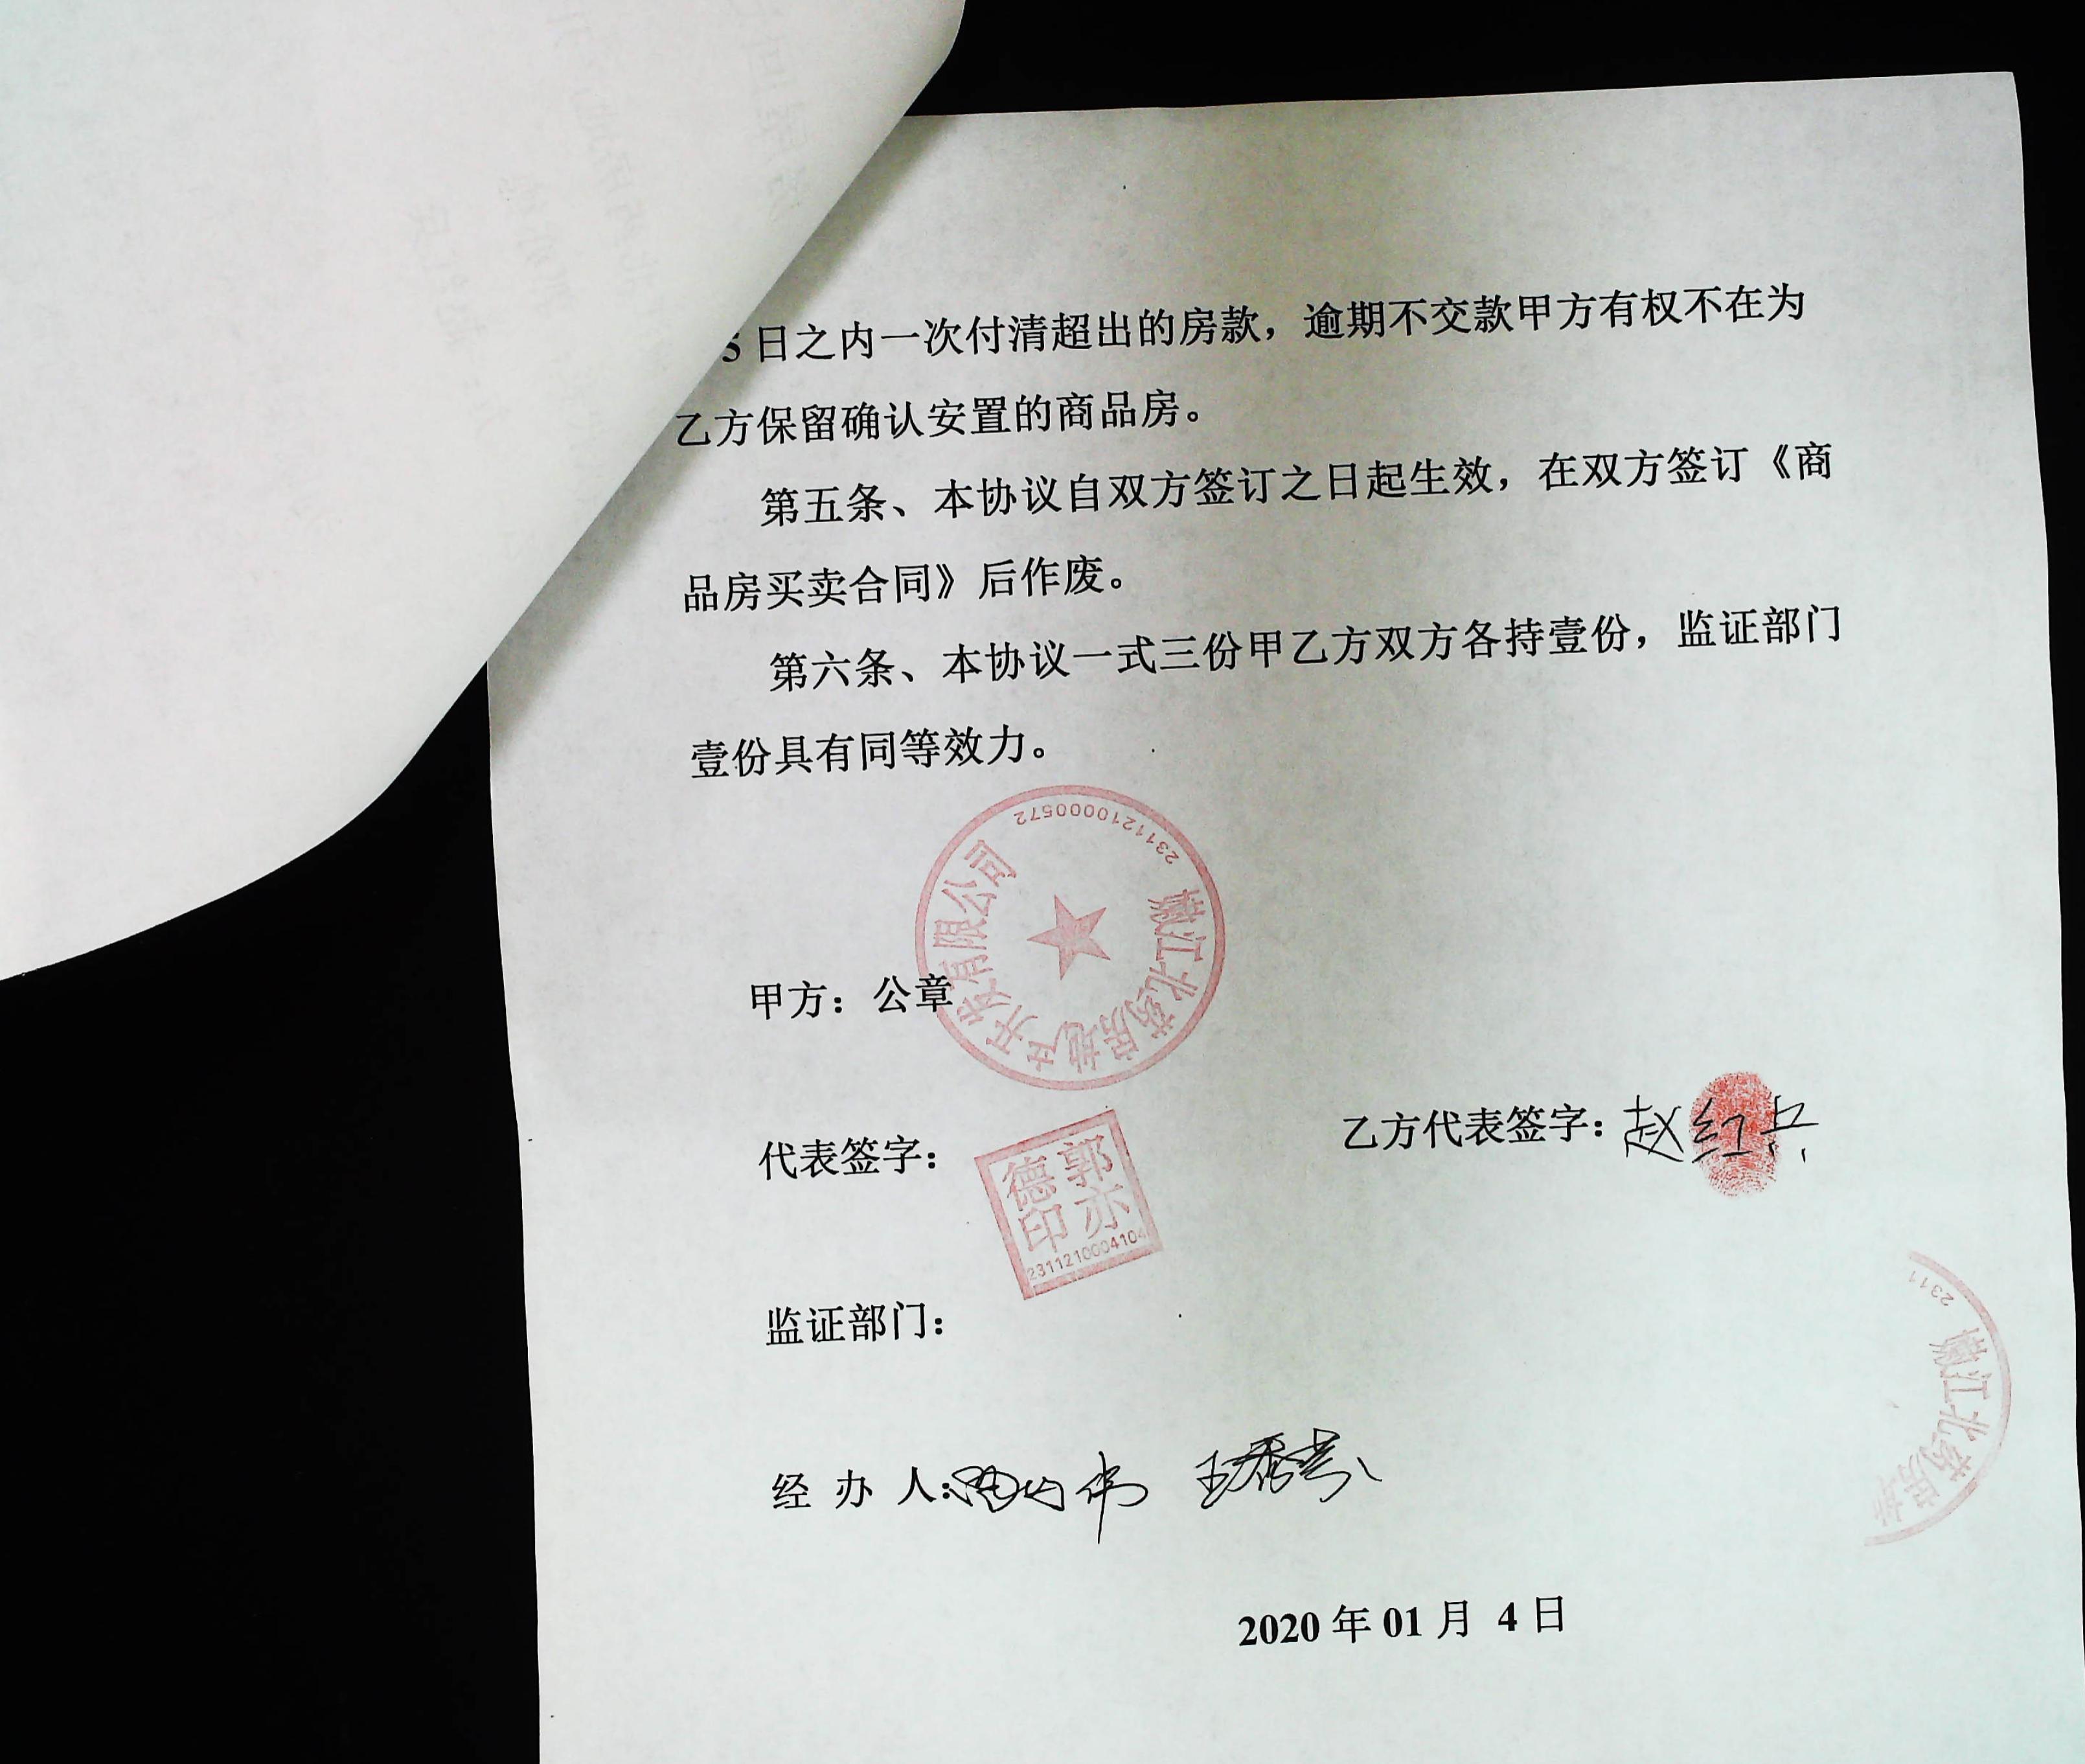 5日之内一次付清超出的房款，逾期不交款甲方有权不在为
乙方保留确认安置的商品房。
第五条、本协议自双方签订之日起生效，在双方签订《商
品房买卖合同》后作废。
第六条、本协议一式三份甲乙方双方各持壹份，监证部门
壹份具有同等效力。
嫩江北药房地产开发有限公司
23111210000572
甲方：公章
代表签字：
郭亦德印
2311210004104
乙方代表签字：赵红兵
监证部门：
2311
嫩江北药房地
经 办 人：
2020年01月 4日